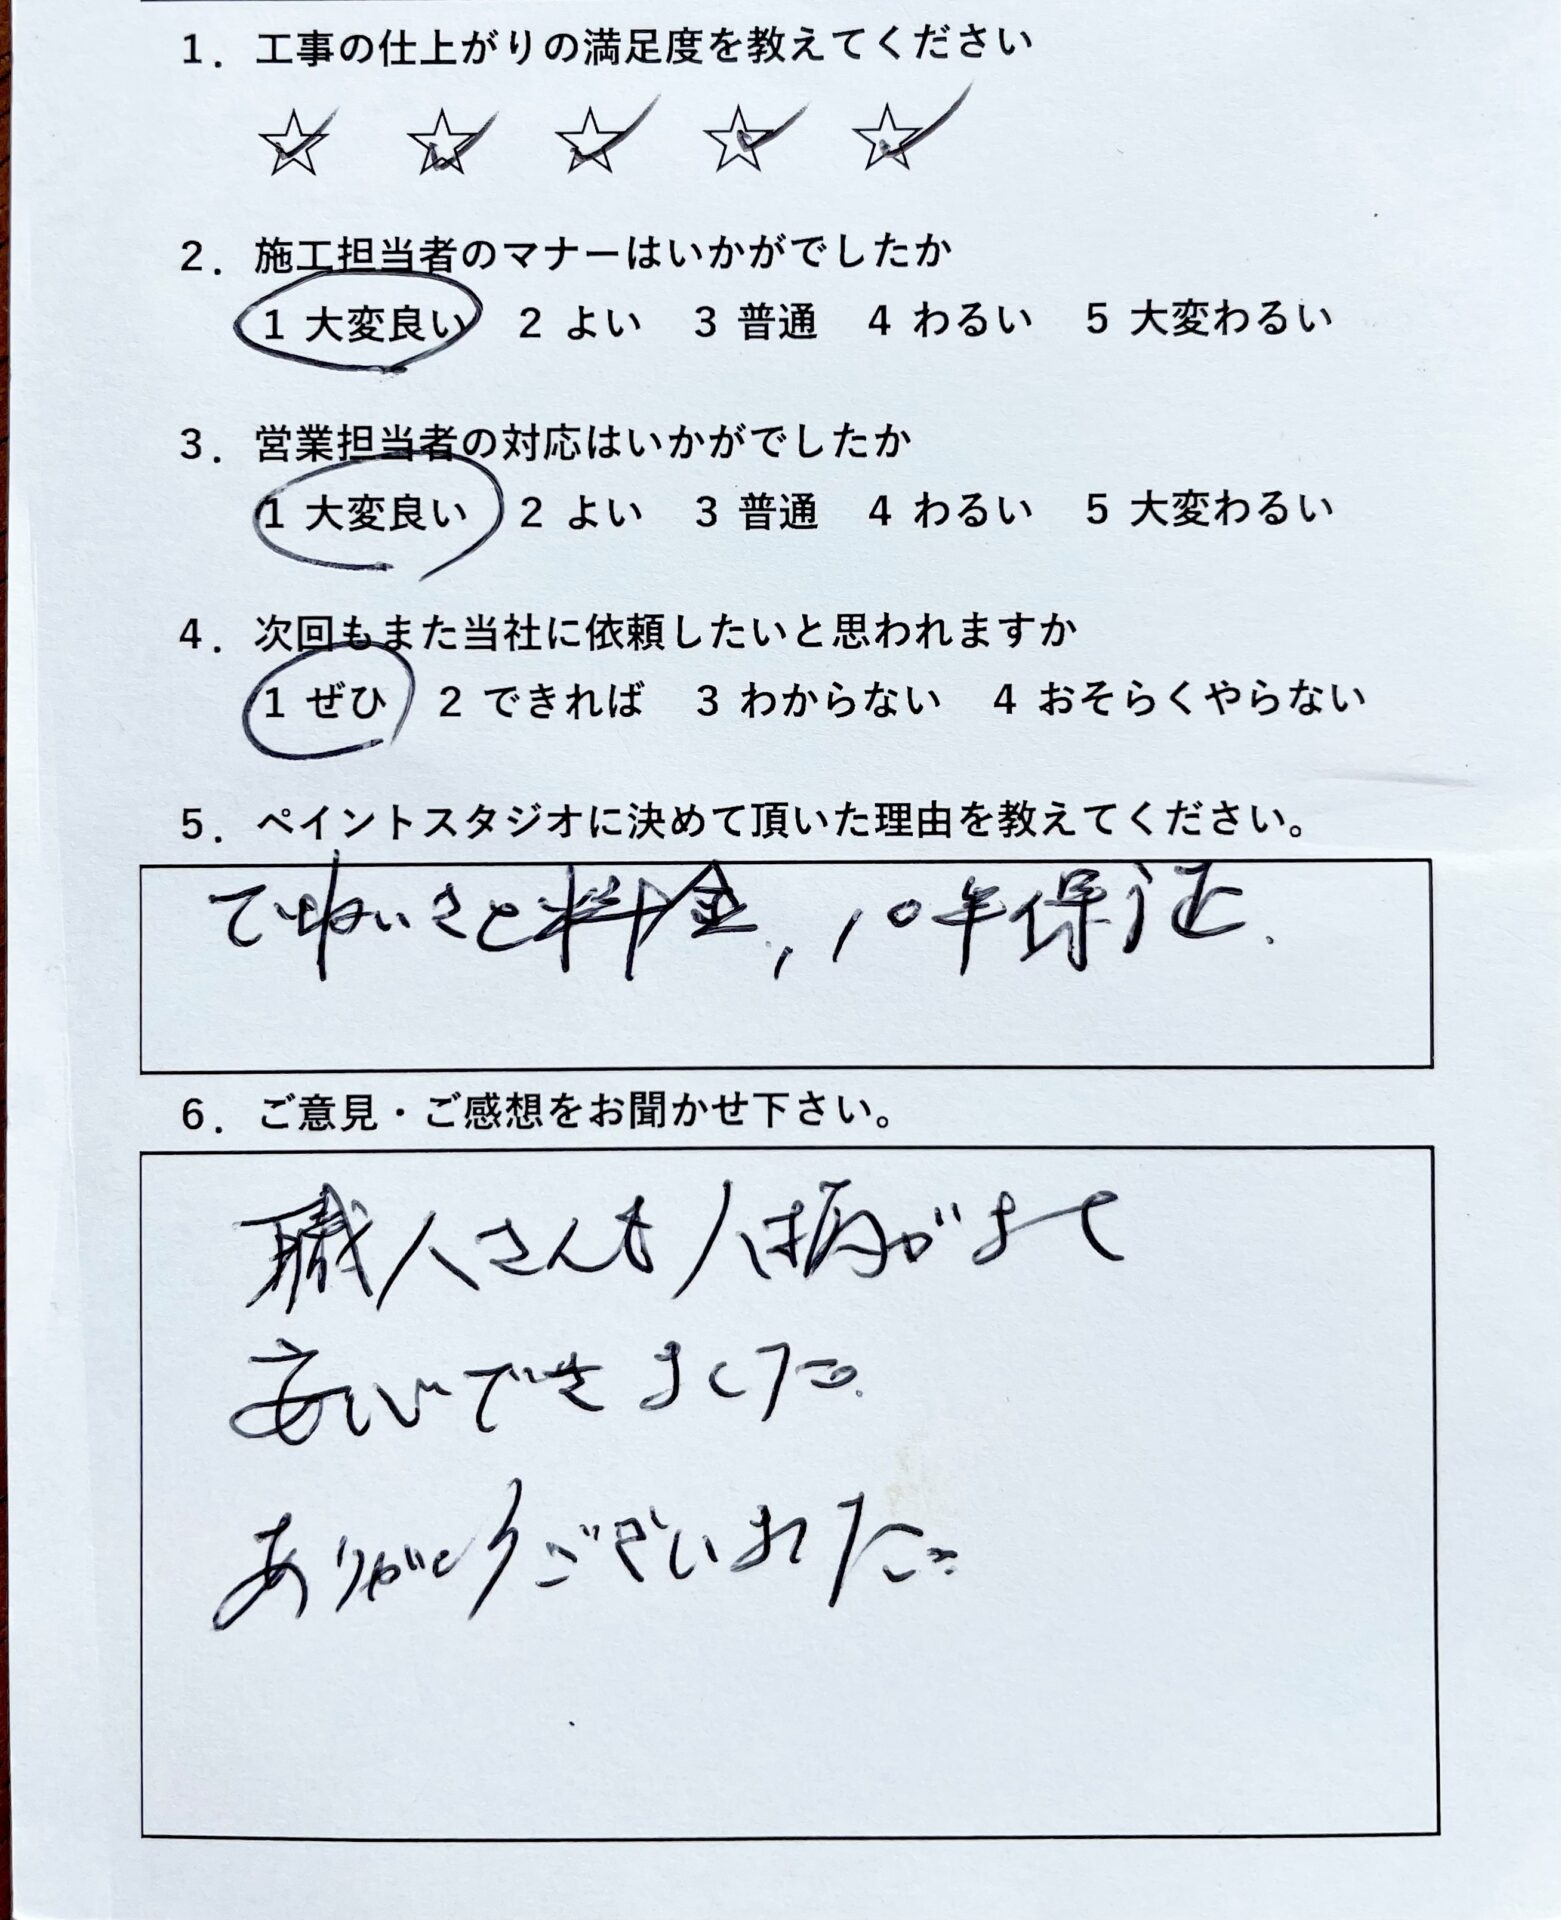 1. 工事の仕上がりの満足度を教えてください
☆ ☆ ☆ ☆ ☆
2. 施工担当者のマナーはいかがでしたか
1 大変良い 2 よい 3 普通 4 わるい 5 大変わるい
3. 営業担当者の対応はいかがでしたか
1 大変良い 2 よい 3 普通 4 わるい 5 大変わるい
4. 次回もまた当社に依頼したいと思われますか
1 ぜひ 2 できれば 3 わからない 4 おそらくやらない
5. ペイントスタジオに決めて頂いた理由を教えてください。
ていねいさと料金、10年保証.
6. ご意見・ご感想をお聞かせ下さい。
職人さんも人柄がよく
安心できました。
ありがとうございました。